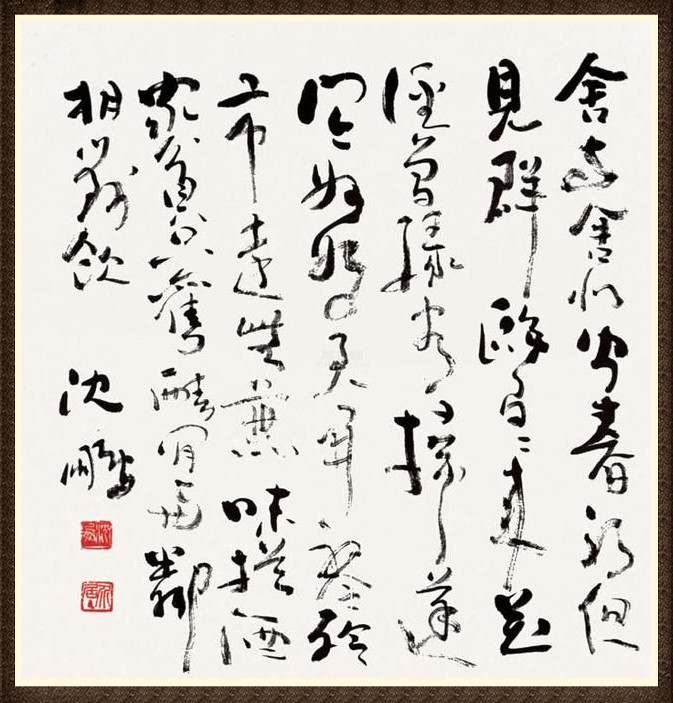 舍南舍北皆春水但
見群鷗日々來花
徑曾緣客掃蓬
門今始為君開盤飧
市遠無兼味樽酒
家貧只舊醅肯與鄰
相對飲
沈鵬